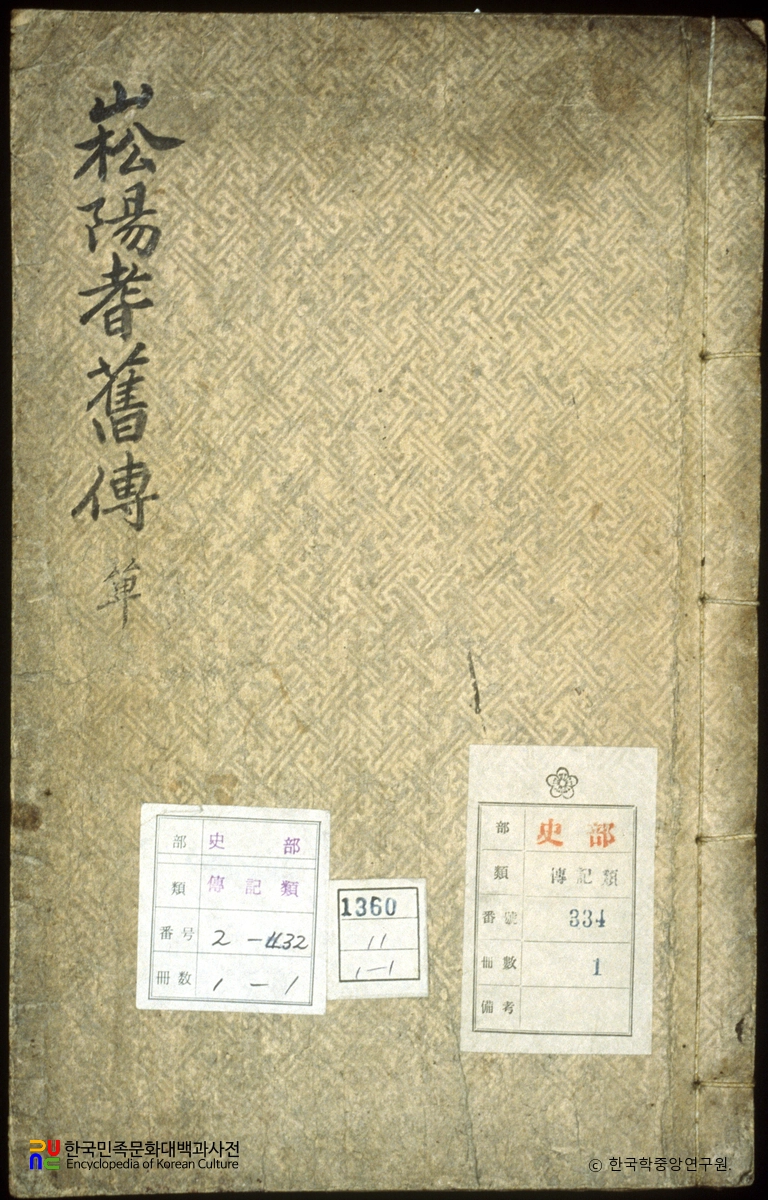 崧陽耆舊傳
單
部 史部
類 傳記類
番号 2-432
冊数 1-1
1360
11
1-1
部 史部
類 傳記類
番號 334
冊數 1
備考
한국민족문화대백과사전
Encyclopedia of Korean Culture
© 한국학중앙연구원.